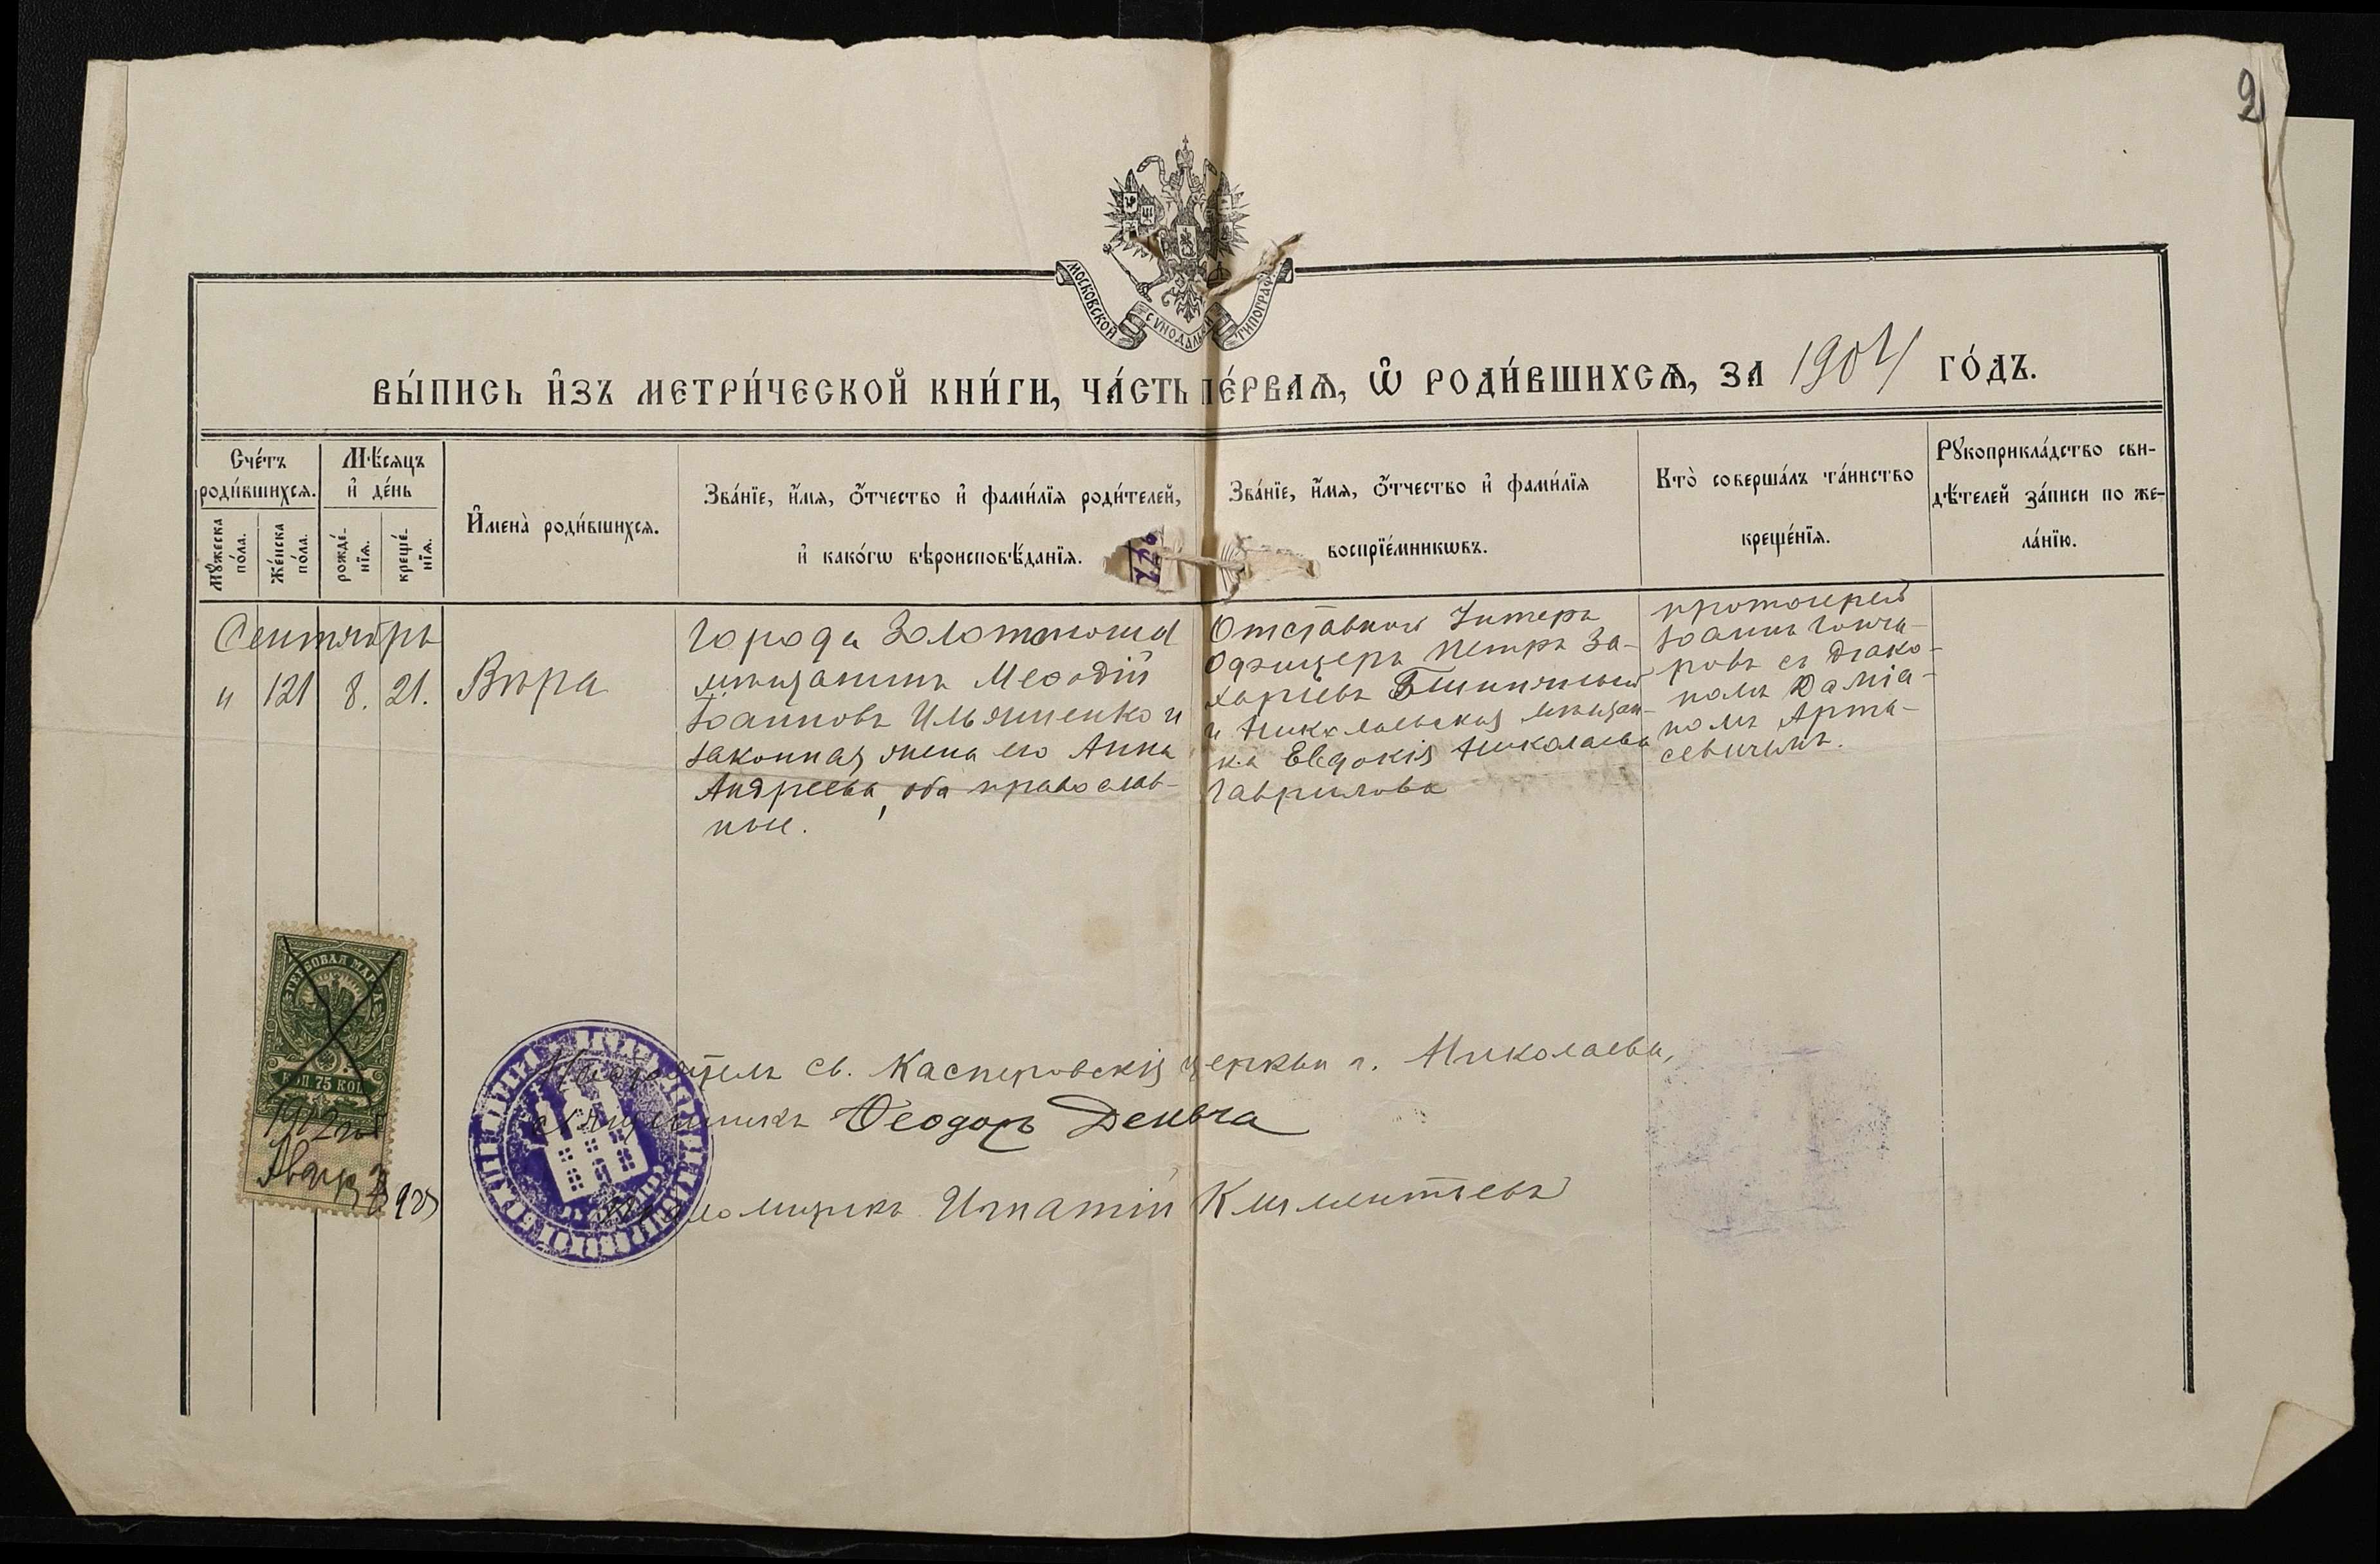 2
МОСКОВСКОЙ СѴНОДАЛЬН ТИПОГРАФ
ВЫ́ПИСЬ И҆ЗЪ МЕТРИ́ЧЕСКОЙ КНИ́ГИ, ЧА́СТЬ ПЕ́РВАѦ, Ѽ РОДИ́ВШИХСѦ, ЗА 1904 ГО́ДЪ.
Сче́тъ роди́вшихсѧ.
Мꙋ́жеска по́ла.
Же́нска по́ла.
Мѣ́сяцъ и҆ де́нь
рожде́нїѧ.
креще́нїѧ.
И҆мена̀ роди́вшихсѧ.
Зва́нїе, и҆́мѧ, ѻ҆́тчество и҆ фами́лїѧ роди́телей,
и҆ како́гѡ вѣроисповѣ́данїѧ.
Зва́нїе, и҆́мѧ, ѻ҆́тчество и҆ фами́лїѧ
воспрїе́мникѡвъ.
Кто̀ соверша́лъ та́инство
креще́нїѧ.
Рꙋкоприкла́дство сви-
дѣ́телей за́писи по же-
ла́нїю.
Сентябрь
и 121 8. 21. Вѣра
Города Золотоноши
мѣщанинъ Меѳодій
Іоанновъ Ильяшенко и
законная жена его Анна
Андреева, оба православ-
ные.
Отставной Унтеръ
Офицеръ Петръ За-
харіевъ
и Николаевская мѣщан-
ка Евдокія Николаева
Гаврилова
протоіерей
Іоаннъ Гонча-
ровъ съ діако-
номъ Даміа-
номъ Арта-
севичемъ.
ГЕРБОВАЯ МАРКА
КОП. 75 КОП.
1912 год
Январ 3 дня
Настоятель св. Касперовскія церкви г. Николаева,
священникъ Ѳеодоръ Деньга
Псаломщикъ Игнатій Климентьевъ